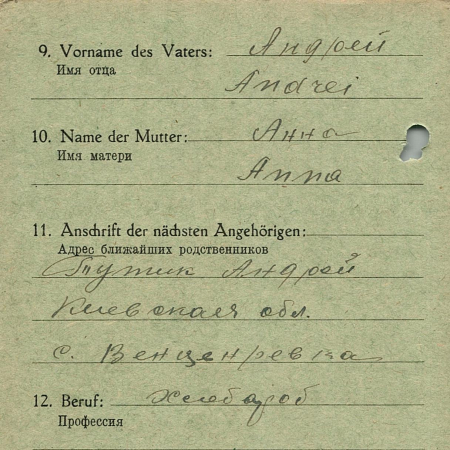 9. Vorname des Vaters: Андрей
Имя отца
Andrei
10. Name der Mutter: Анна
Имя матери
Anna
11. Anschrift der nächsten Angehörigen:
Адрес ближайших родственников
Путик Андрей
Киевская обл.
с. Венценревка
12. Beruf: хлебароб
Профессия